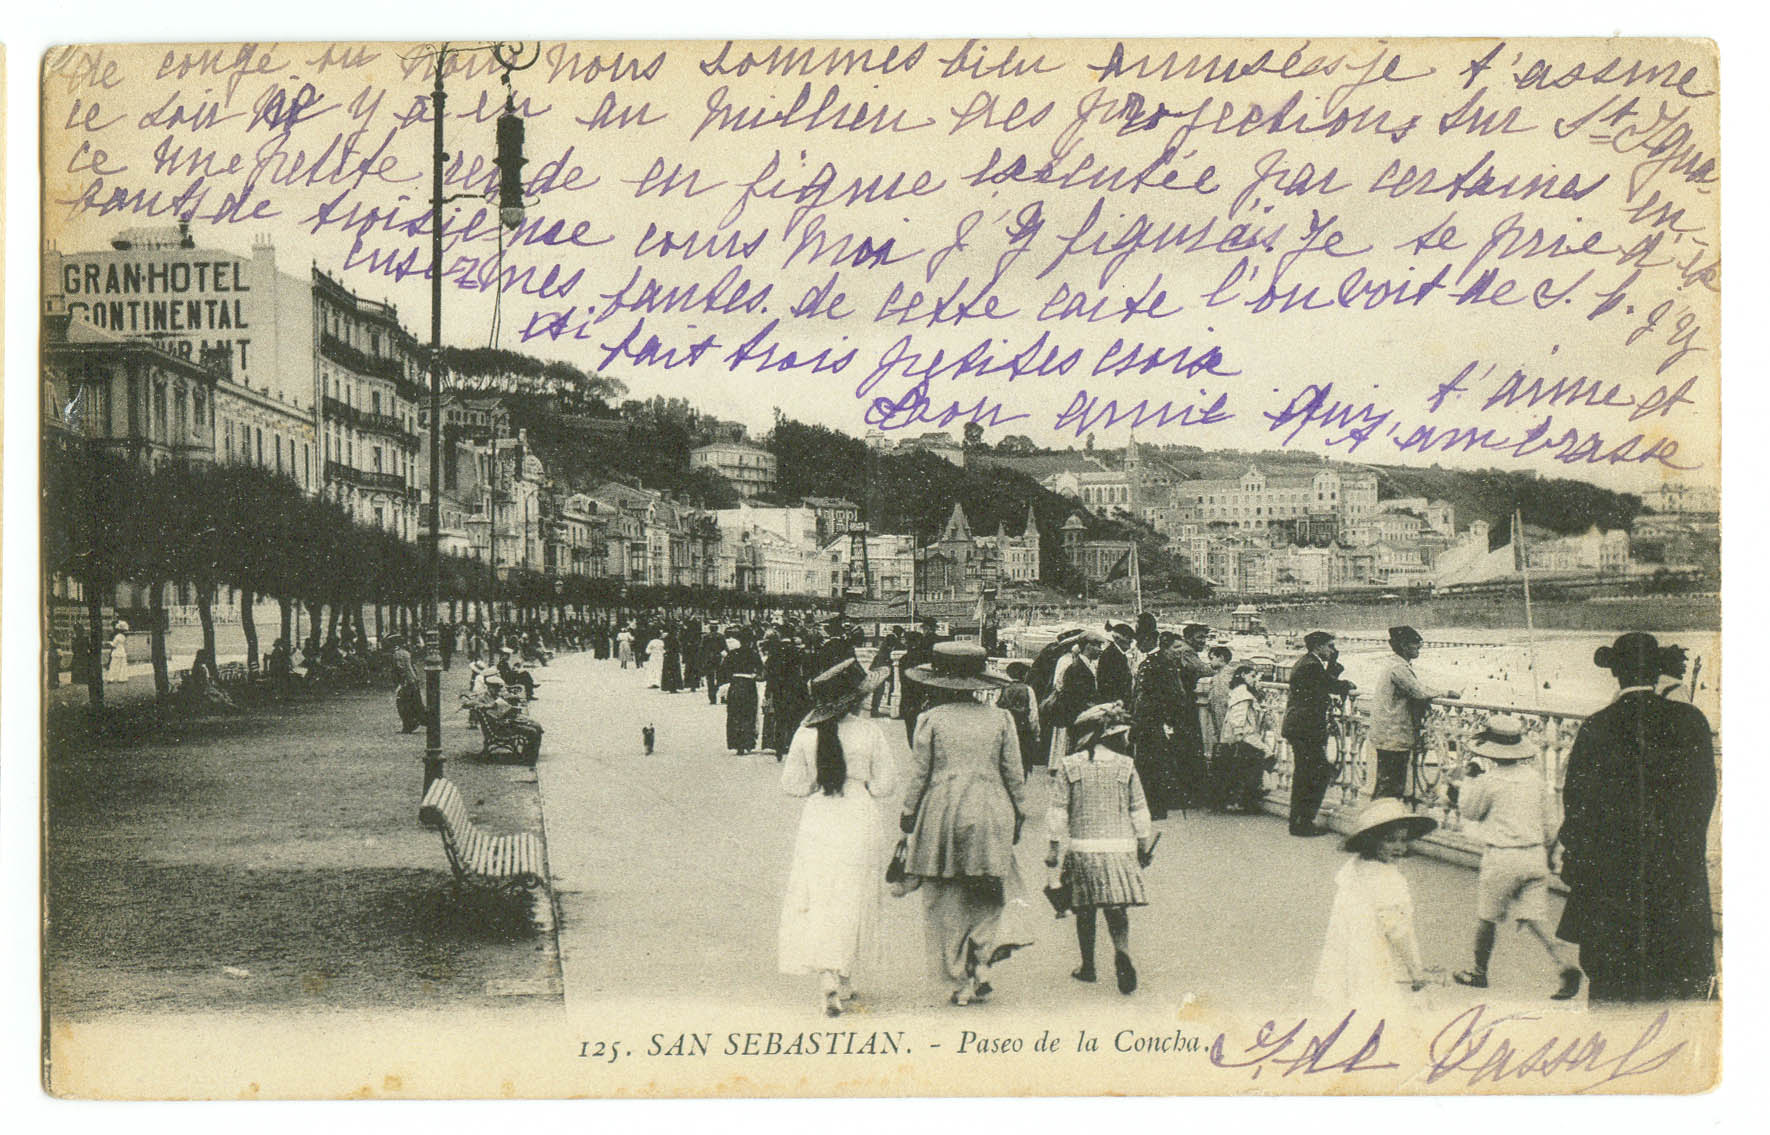 de congé où nous nous sommes bien amusées je t'assure
ce soir il y a eu au millieu des projections sur St Igna-
ce une petite ronde en figure exécutée par certaines en-
fants de troisième cours Moi j'y figurais. Je te prie d'
excuses
fantes. de cette carte l'on voit de S. S. j'y
ai fait trois petites croix
Ton amie qui t'aime et
t'ambrasse
GRAN·HOTEL
CONTINENTAL
RESTAURANT
125. SAN SEBASTIAN. - Paseo de la Concha.
Y. de Vassals